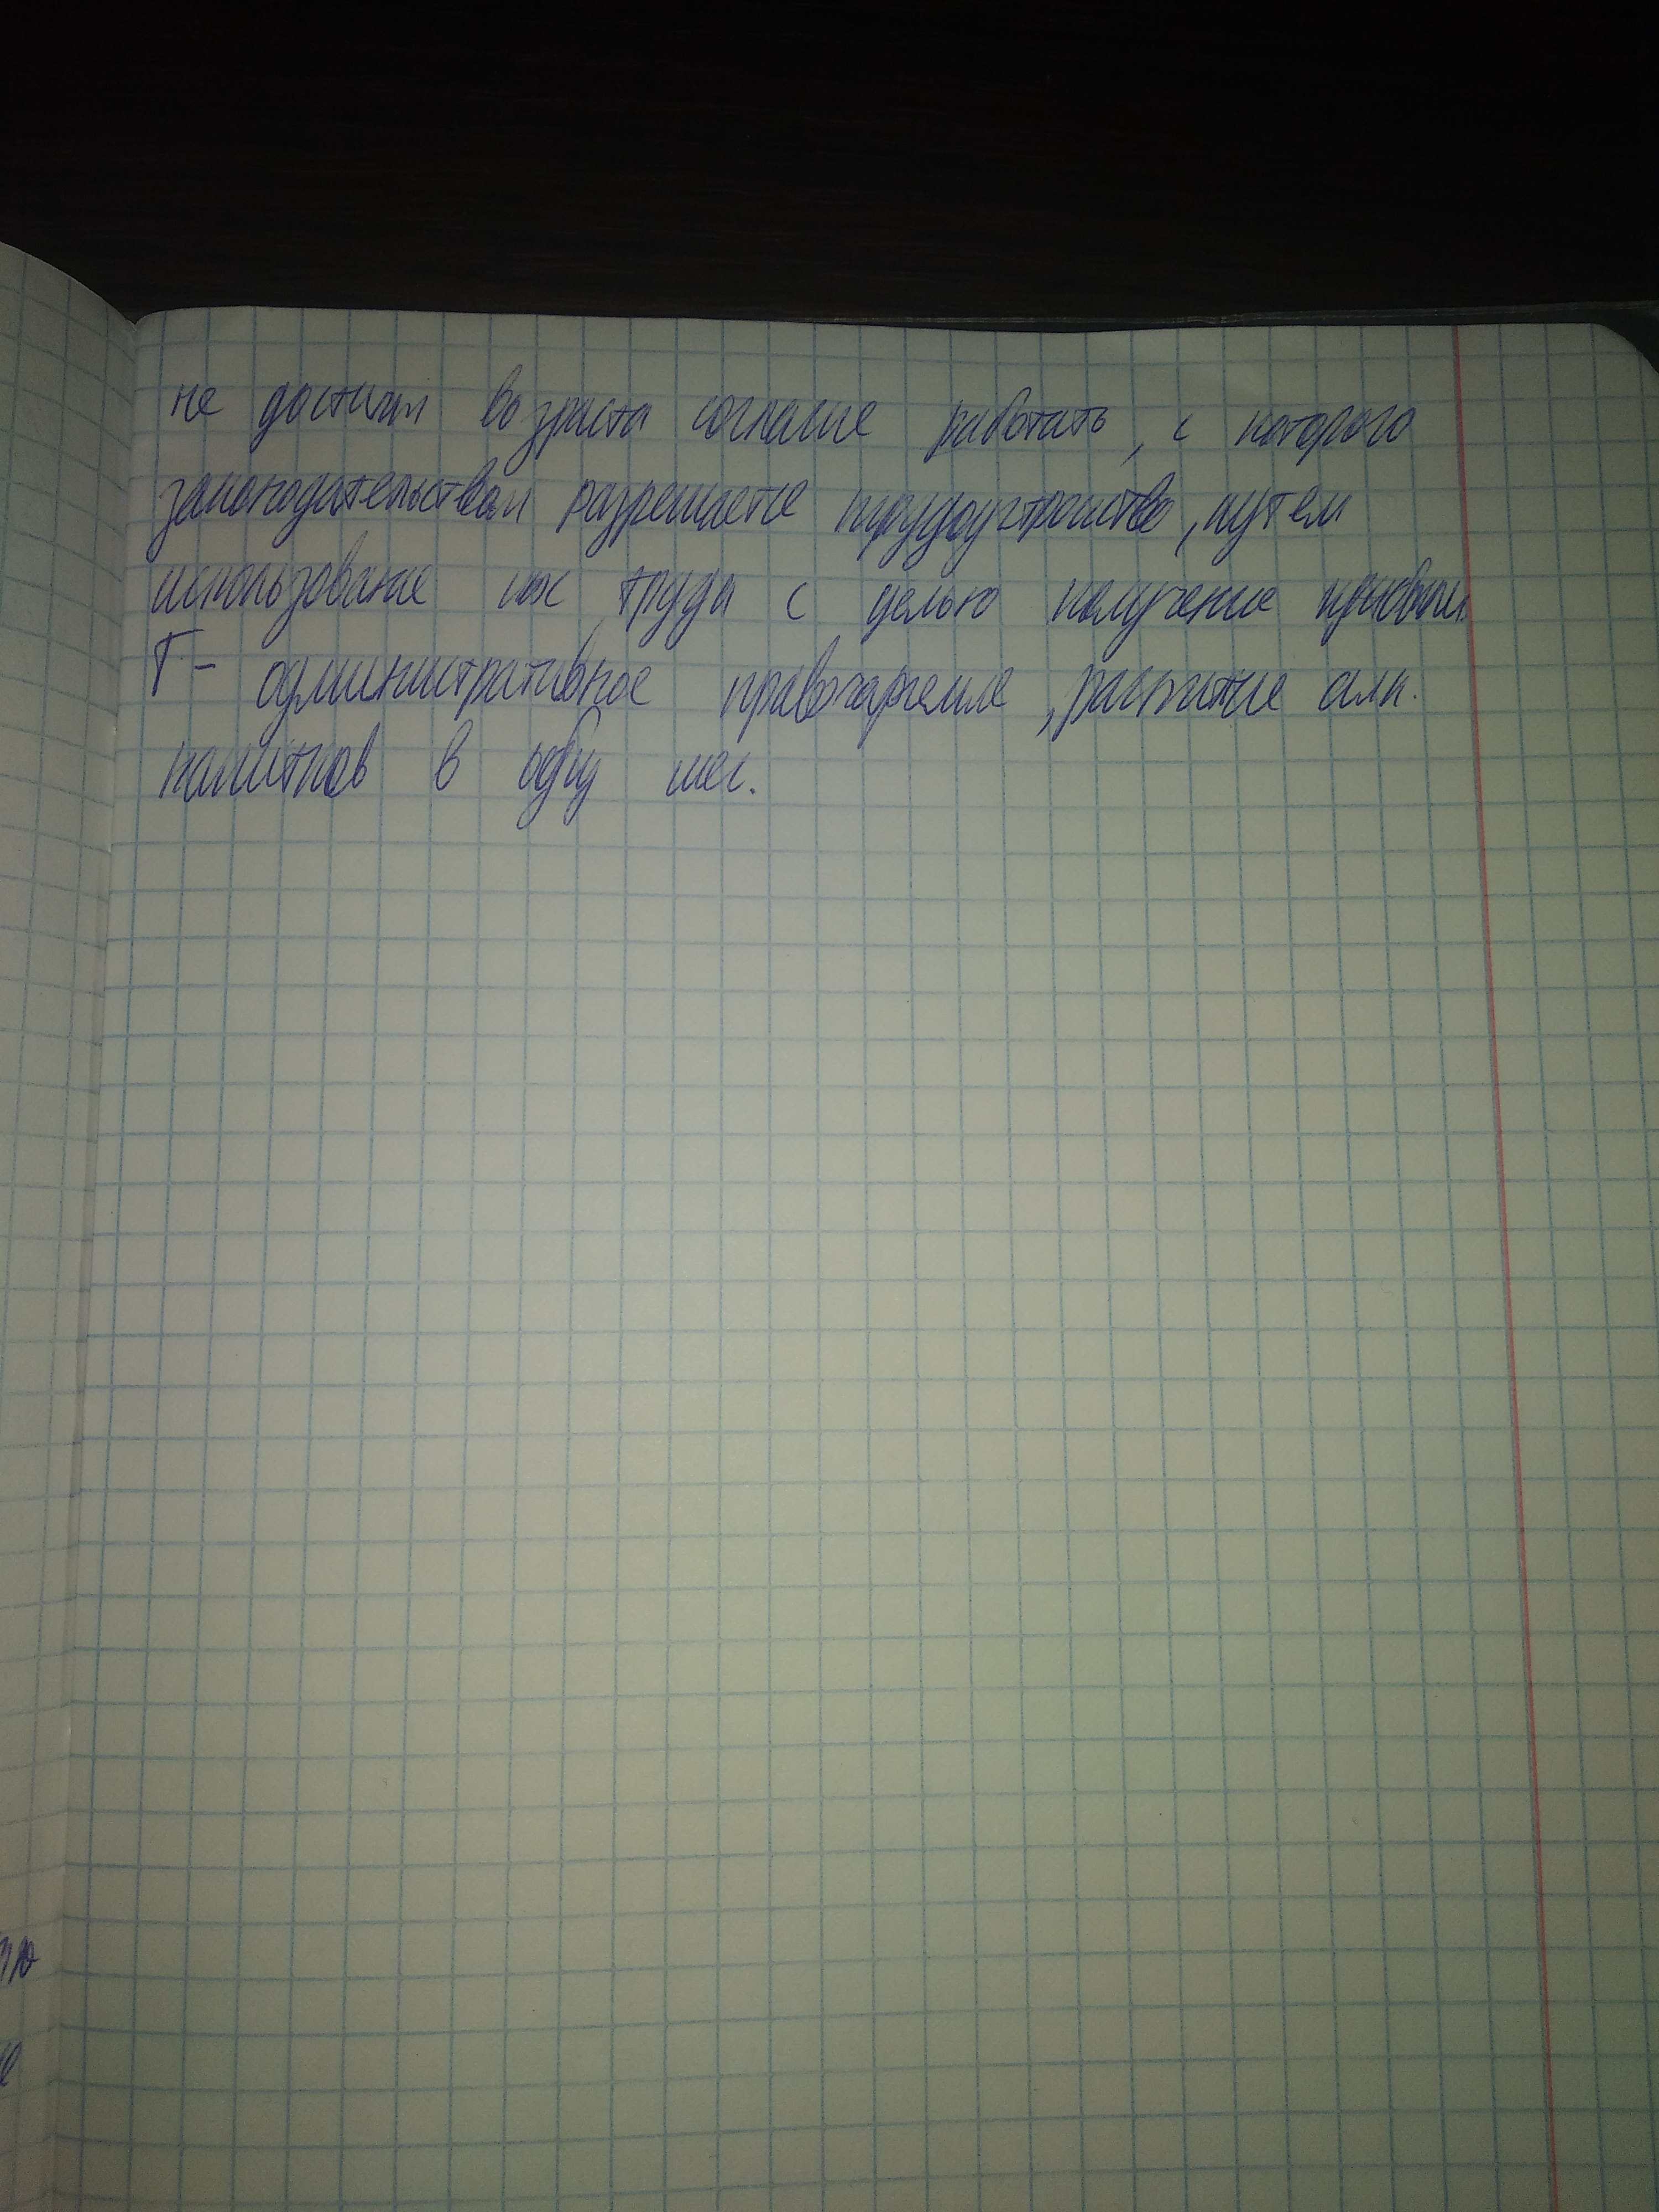 не достигли возраста согласие работать, с которого
законодательством разрешается трудоустройство, путем
использование их труда с целью получение прибыли.
Г - административное правонарушение, распитие алк.
напитков в общ мес.